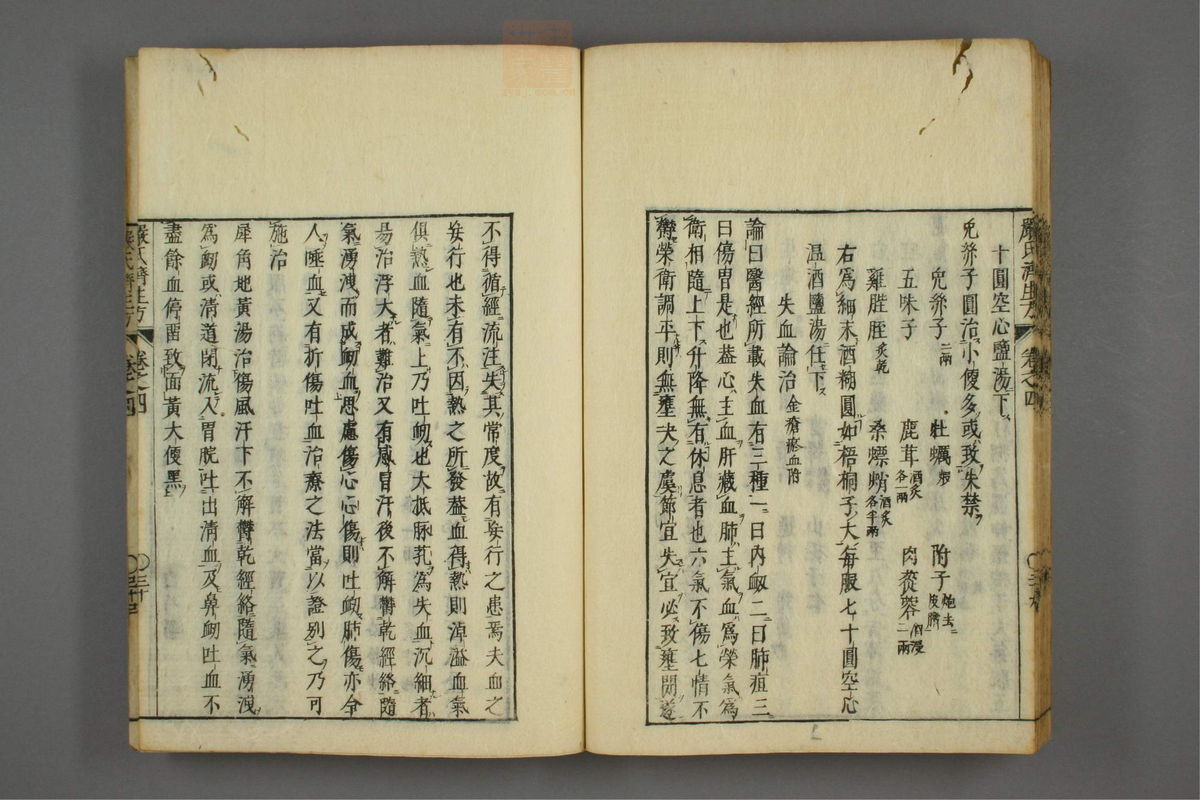 十圓空心鹽湯下
兔絲子圓治小便多或致失禁
兔絲子二兩 牡蠣 附子炮去皮臍
五味子 鹿茸酒炙各一兩 肉蓯蓉酒浸二兩
雞膍胵炙乾 桑螵蛸酒炙各半兩
右為細末酒糊圓如梧桐子大每服七十圓空心
溫酒鹽湯任下
失血論治金瘡瘀血附
論曰醫經所載失血有三種一曰內衂二曰肺疽三
曰傷胃是也蓋心主血肝藏血肺主氣血為榮氣為
衛相隨上下升降無有休息者也六氣不傷七情不
鬱榮衛調平則無壅決之虞節宜失宜必致壅閉遂
不得循經流注失其常度故有妄行之患焉夫血之
妄行也未有不因熱之所發蓋血得熱則淖溢血氣
俱熱血隨氣上乃吐衂也大抵脉芤為失血沉細者
易治浮大者難治又有感冒汗後不解鬱乾經絡隨
氣湧洩而成衂血思慮傷心心傷則吐衂肺傷亦令
人唾血又有折傷吐血治療之法當以證別之乃可
施治
犀角地黃湯治傷風汗下不解鬱乾經絡隨氣湧洩
為衂或清道閉流入胃脘吐出清血及鼻衂吐血不
盡餘血停留致面黃大便黑
嚴氏濟生方
卷之四